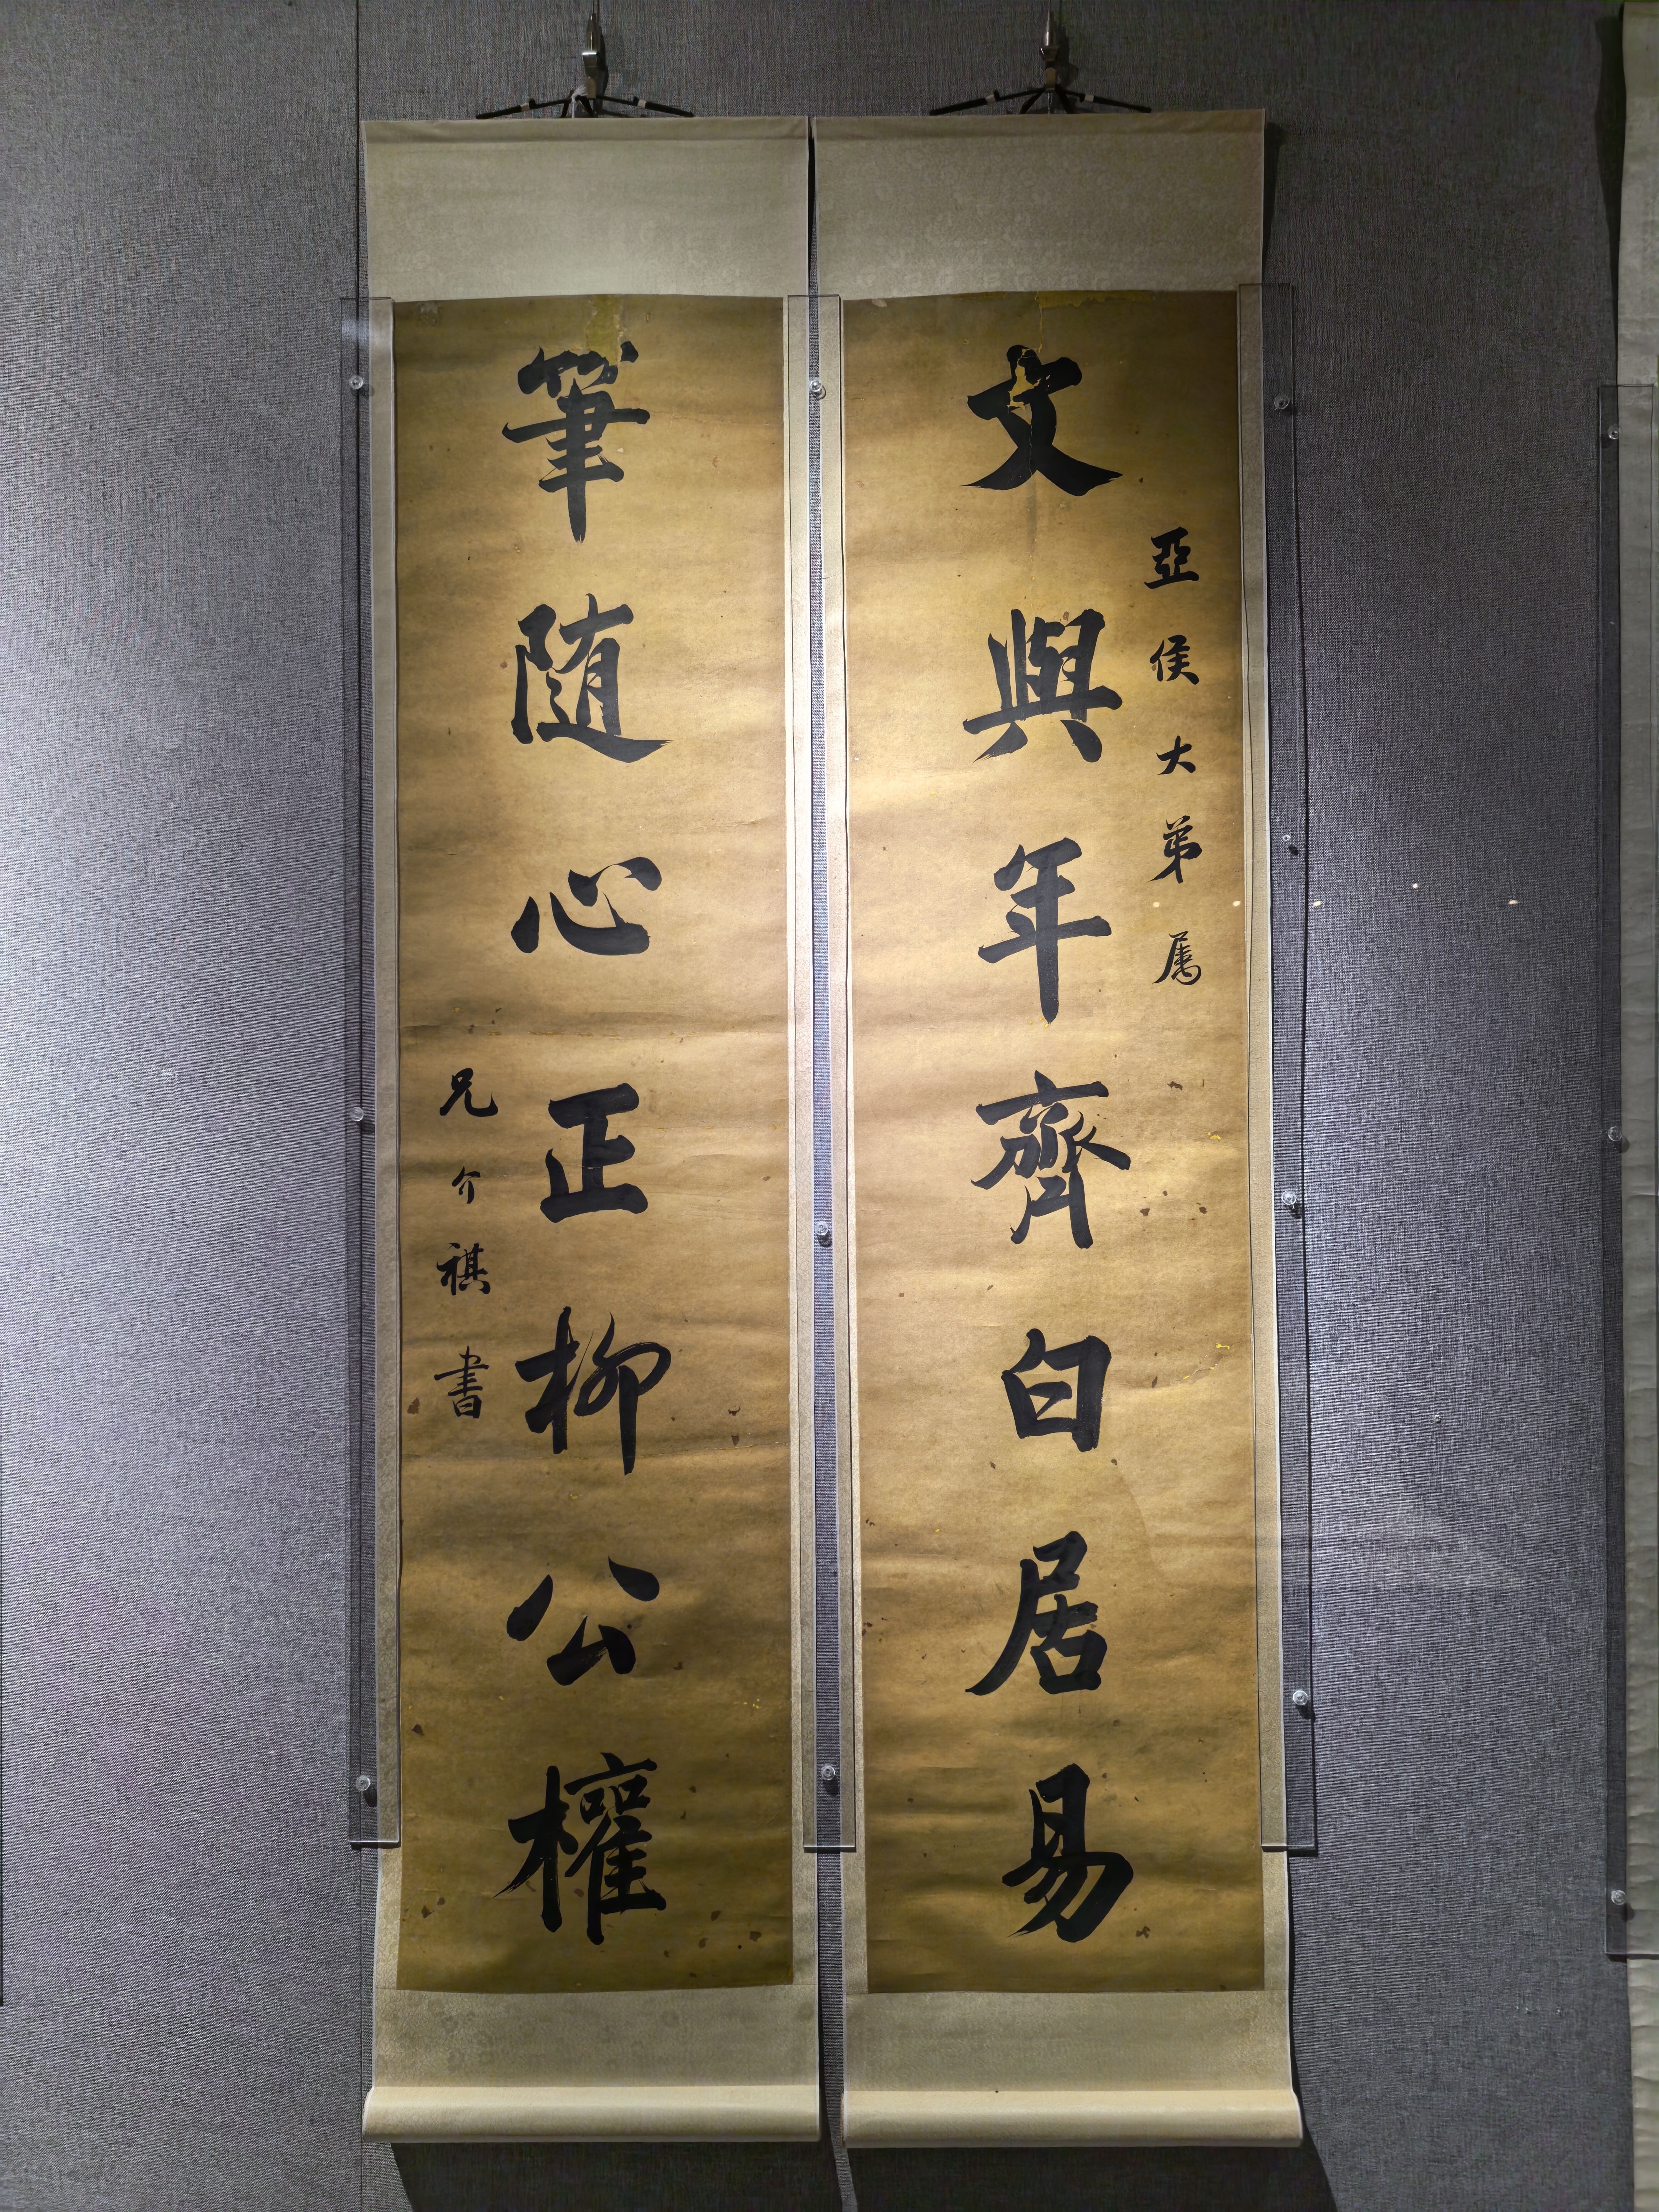 亞侯大弟属
文與年齊白居易
筆随心正柳公權
兄介祺書